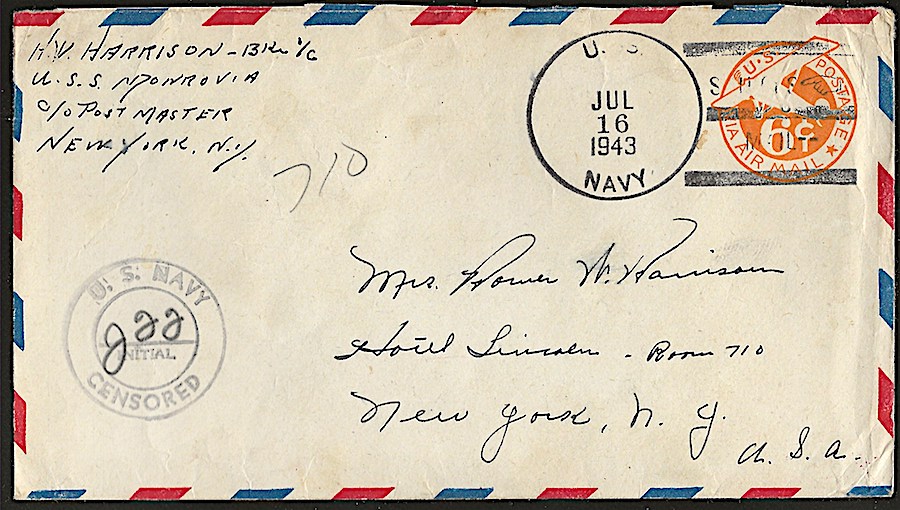 H.V. HARRISON - BKr 1/C
U.S.S. MONROVIA
C/O POST MASTER
NEW YORK, N.Y.
710
U. S.
JUL
16
1943
NAVY
U.S. POSTAGE
6¢
VIA AIR MAIL
Mrs. Homer W. Harrison
Hotel Lincoln - Room 710
New York, N. Y.
U. S. A.
U. S. NAVY
INITIAL
CENSORED